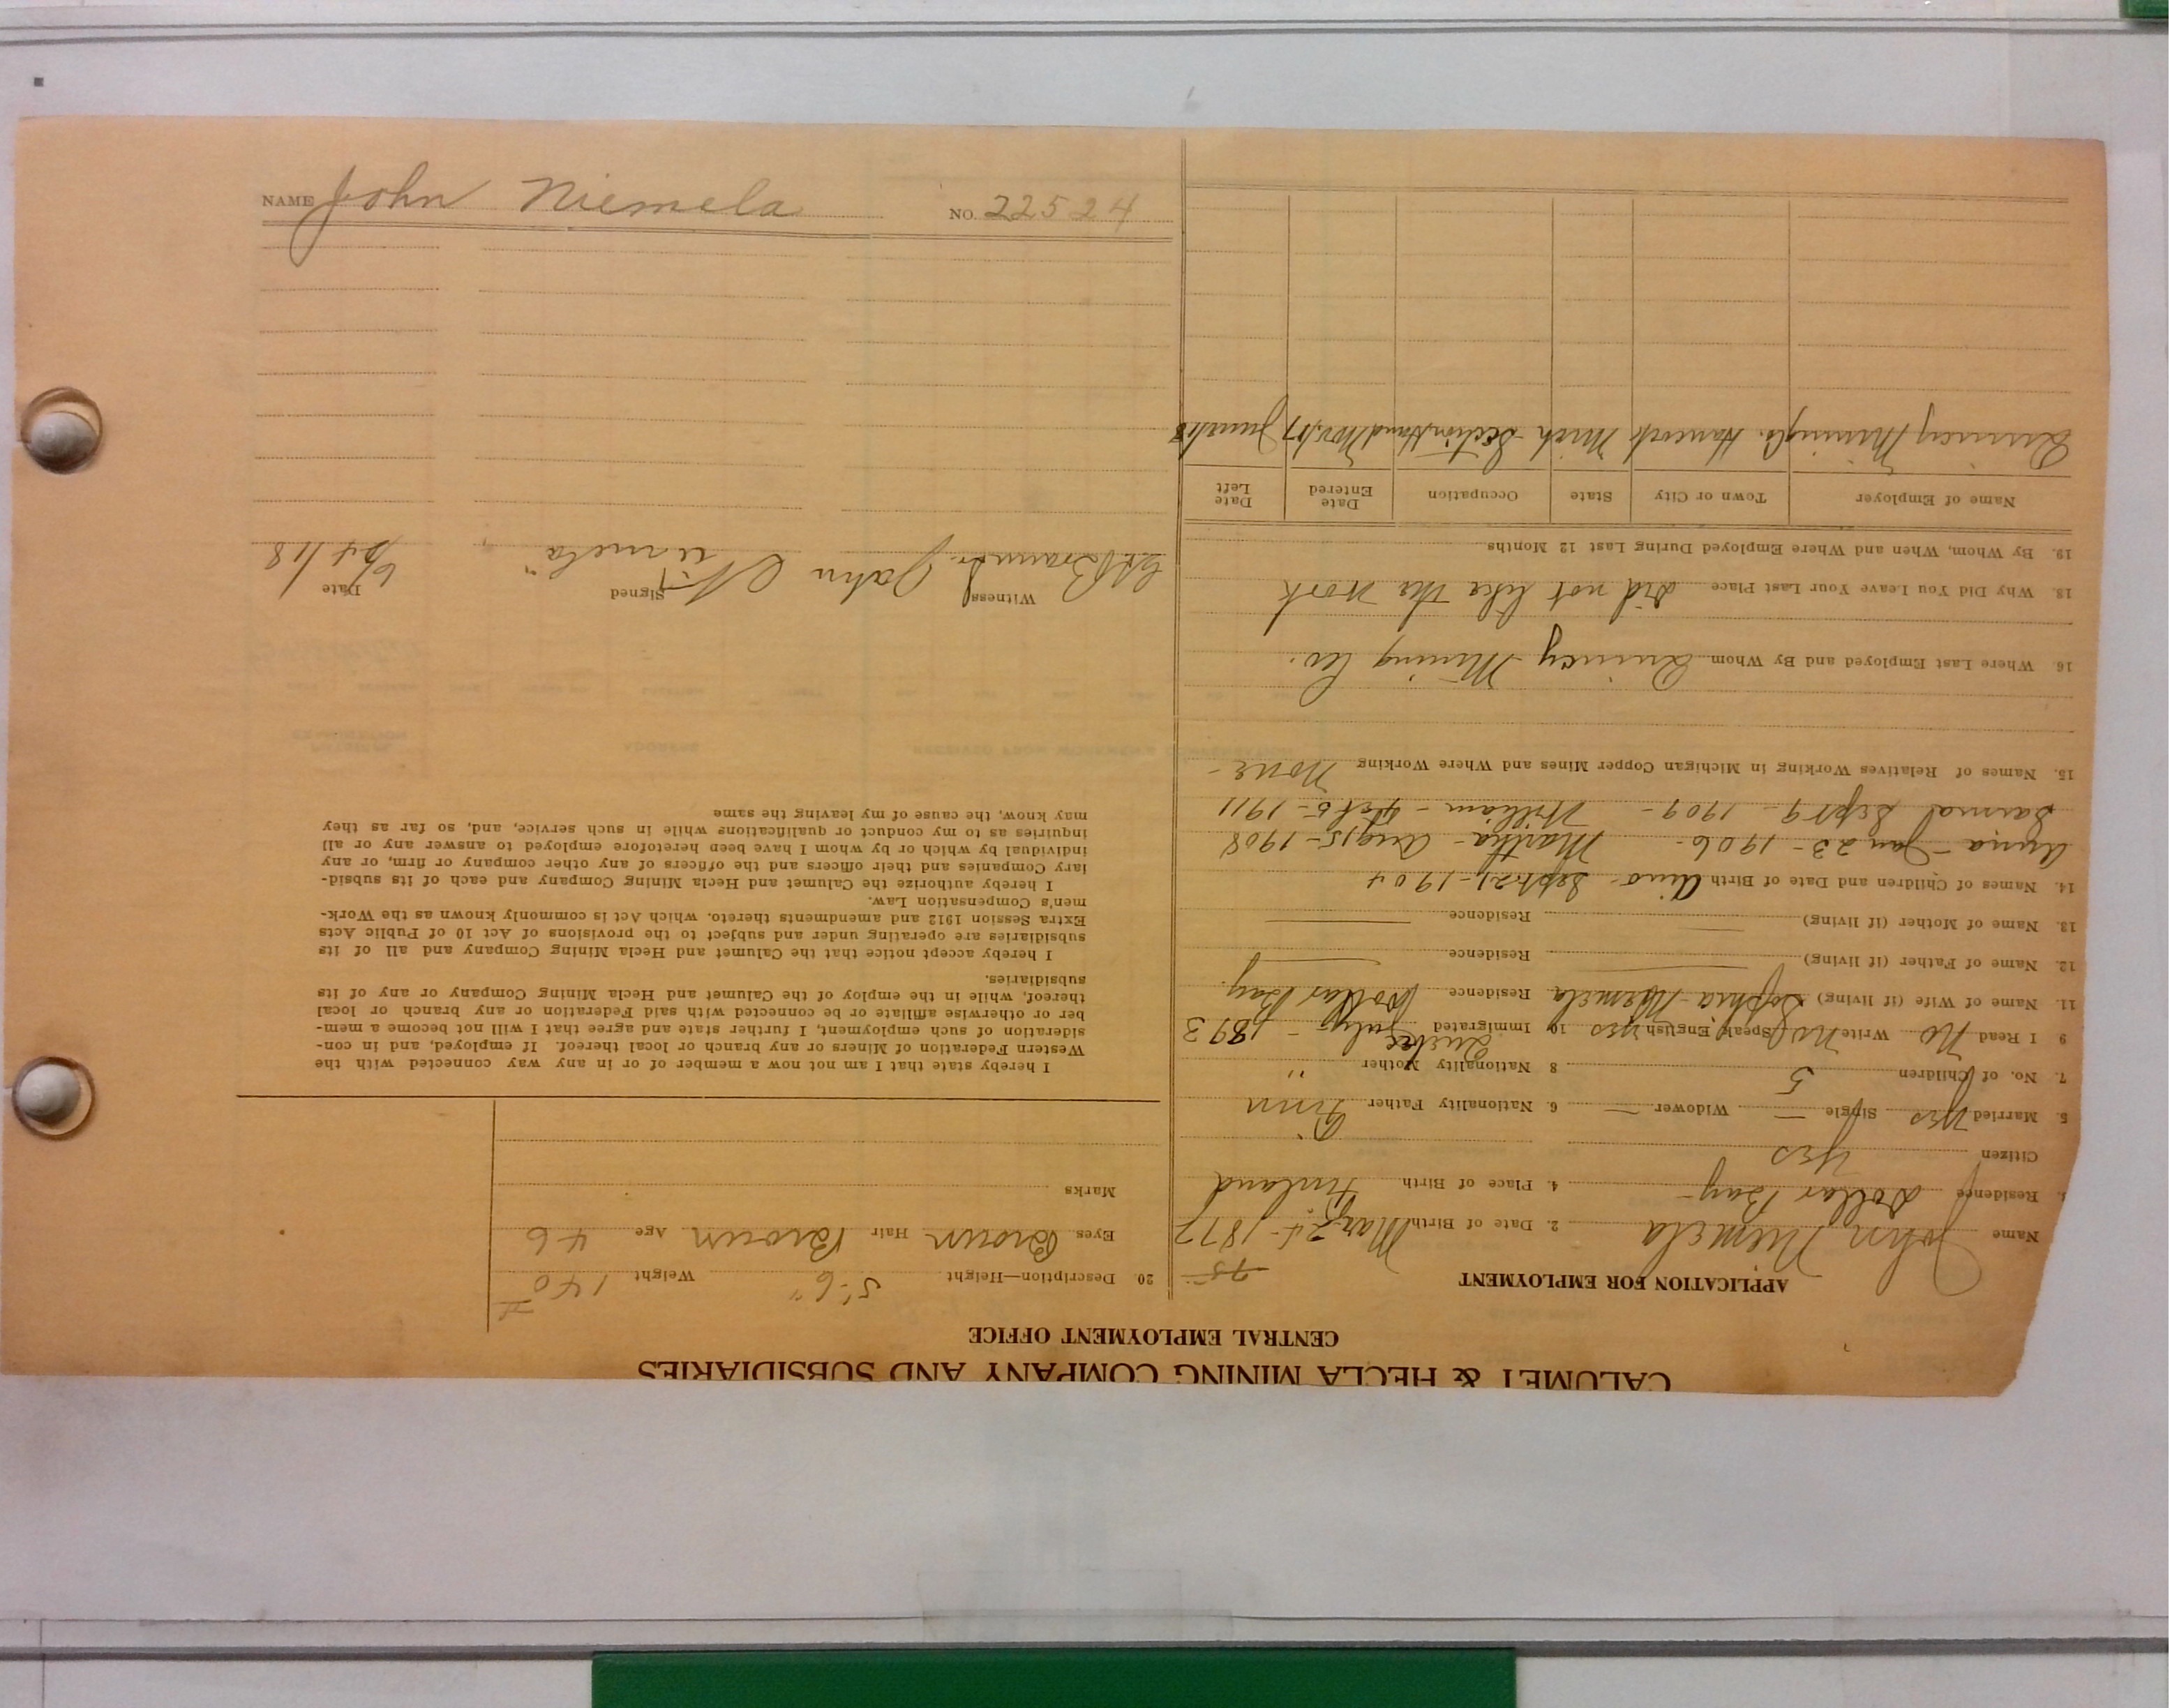 CALUMET & HECLA MINING COMPANY AND SUBSIDIARIES
CENTRAL EMPLOYMENT OFFICE
APPLICATION FOR EMPLOYMENT
75
Name John Niemela 2. Date of Birth Mar 24-1872
Residence Dollar Bay 4. Place of Birth Finland
Citizen yes
5 Married yes Single — Widower — 6. Nationality Father Finn
7. No. of Children 5 8 Nationality Mother "
9 I Read No Write No Speak English yes 10 Immigrated Quebec July - 1893
11. Name of Wife (if living) Sophia Niemela Residence Dollar Bay.
12. Name of Father (if living) Residence
13. Name of Mother (if living) Residence
14. Names of Children and Date of Birth Aino - Sept-21-1904
Annia - Jan 23 - 1906 - Martha - Aug 15 - 1908
Sept 9 - 1909 - William - Feb 5 - 1911
15. Names of Relatives Working in Michigan Copper Mines and Where Working None -
16 Where Last Employed and By Whom Quincy Mining Co.
18. Why Did You Leave Your Last Place Did not like the work
19. By Whom, When and Where Employed During Last 12 Months
Name of Employer Town or City State Occupation Date Entered Date Left
Quincy Mining Co. Hancock Mich Section Hand Nov/17 June/18
20. Description—Height 5'-6" Weight 140 #
Eyes Brown Hair Brown Age 46
Marks
I hereby state that I am not now a member of or in any way connected with the
Western Federation of Miners or any branch or local thereof. If employed, and in con-
sideration of such employment, I further state and agree that I will not become a mem-
ber or otherwise affiliate or be connected with said Federation or any branch or local
thereof, while in the employ of the Calumet and Hecla Mining Company or any of its
subsidiaries.
I hereby accept notice that the Calumet and Hecla Mining Company and all of its
subsidiaries are operating under and subject to the provisions of Act 10 of Public Acts
Extra Session 1912 and amendments thereto, which Act is commonly known as the Work-
men's Compensation Law.
I hereby authorize the Calumet and Hecla Mining Company and each of its subsid-
iary Companies and their officers and the officers of any other company or firm, or any
individual by which or by whom I have been heretofore employed to answer any or all
inquiries as to my conduct or qualifications while in such service, and, so far as they
may know, the cause of my leaving the same
Witness Signed Date
John Niemela 6/24/18
NAME John Niemela NO. 22524